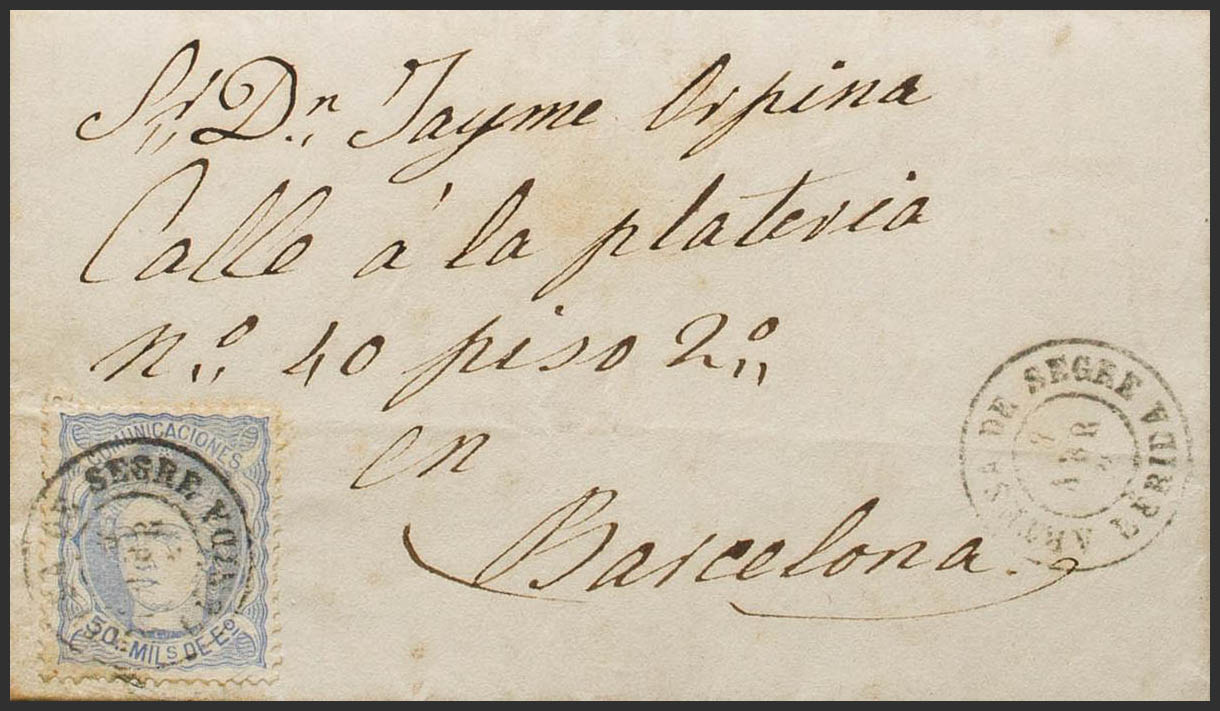 Sr. Dn. Jayme Orpina
Calle á la plateria
n.º 40 piso 2º
en
Barcelona
COMUNICACIONES
50 MILS DE Eº
DE SEGRE
ABR
DE SEGRE LERIDA
ABR